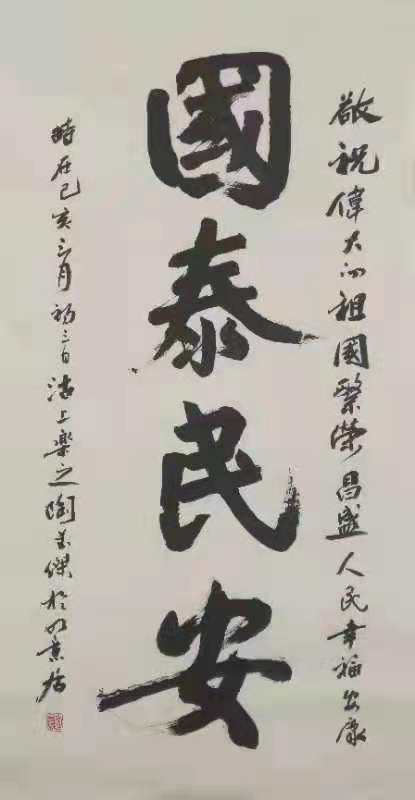 敬祝偉大的祖國繁榮昌盛人民幸福安康
國泰民安
時在己亥三月初三日沽上樂之陶書傑於明景居